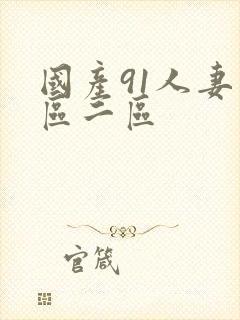 國產91人妻
區二區
官箴